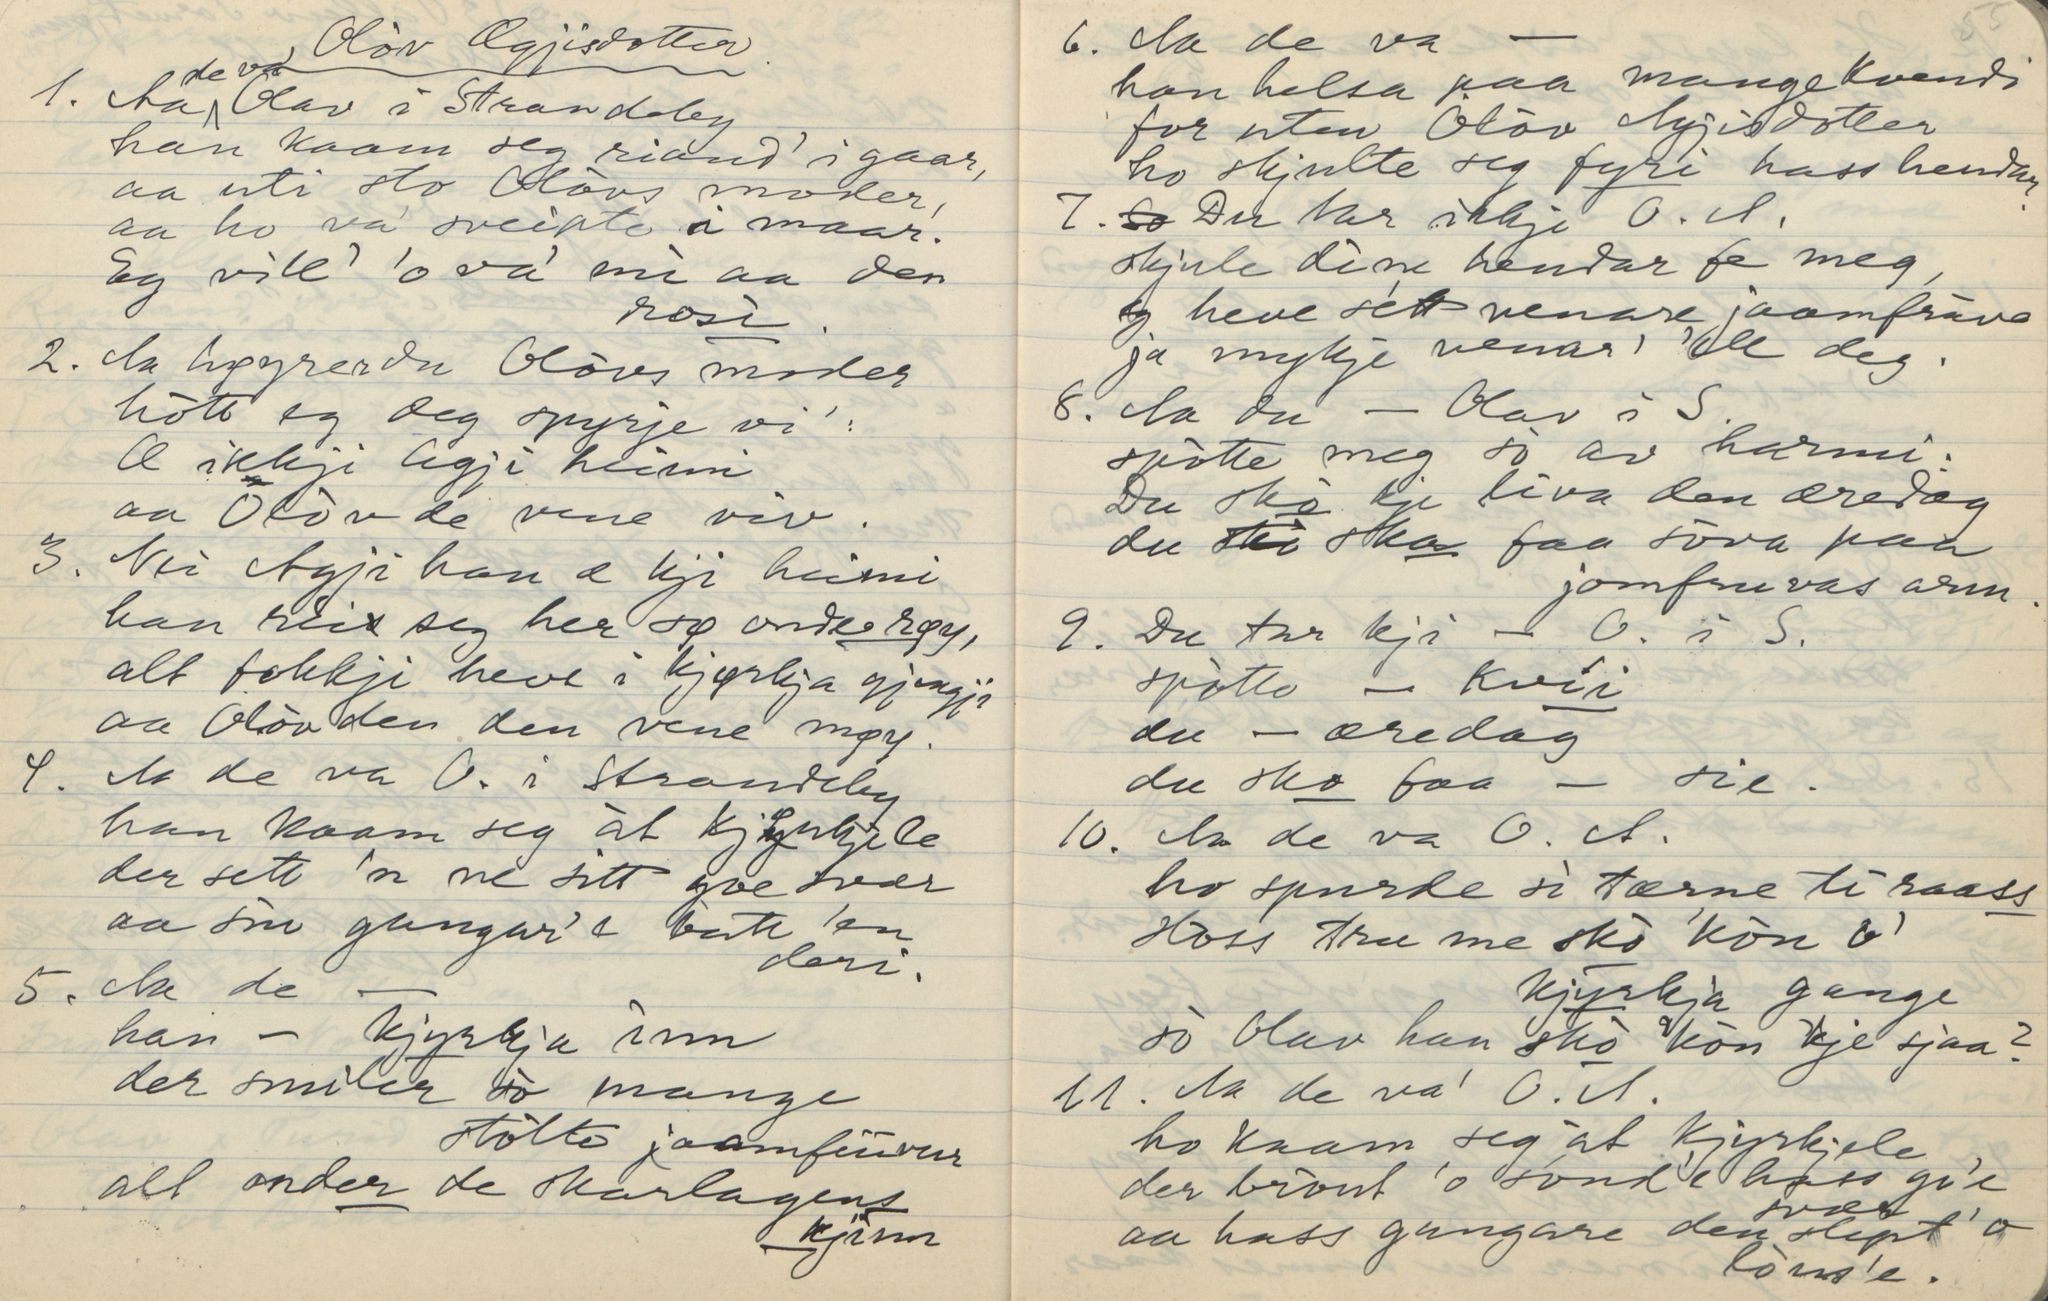 Olòv Ægjisdotter.
1. Aa de va' Olav i Strandeby
han kaam seg riand' i gaar,
aa uti sto Olòvs moder,
aa ho va' sveipte i maar.
Eg vill' 'o va' mi aa den
rosi.
2. Aa høyrer du Olòvs moder
hòtt eg deg spyrje vi':
Æ ikkji Agji heimi
aa Olòv de vene viv.
3. Nei Agji han æ kji heimi
han reis seg her sø onde røy,
alt fokkji heve i kjørkja gjengji
aa Olòv den den vene møy.
4. Aa de va O. i Strandeby
han kaam seg àt kjyrkjele
der sett 'n ne sitt goe svær
aa sin gangar'e batt 'en
deri.
5. Aa de —
han — kjyrkja inn
der smiler sò mange
stolte jaamfruvur
alt onder de skarlagens
kjinn
55
6. Aa de va —
han helsa paa mange kvendi
for uten Olòv Agjisdotter
ho skjulte seg fyri hass hendar.
7. So Du tar ikkje O. A.
skjule dine hendar fe meg,
eg heve sett venare jaamfruve
ja mykje venar' 'ell deg.
8. Aa du — Olav i S.
spòtte meg sò av harmi:
Du skò kje liva den æredag
du skò ska faa sòva paa
jomfruvas arm.
9. Du tar kji — O. i S.
spòtte — kvii
du — æredag
du sko faa — sie.
10. Aa de va O. A.
ho spurde si tærne ti raass
Hoss tru me skò kòn o'
kjyrkja gange
sò Olav han skò kòn kje sjaa?
11. Aa de va' O. A.
ho kaam seg àt kjyrkjele
der bròut 'o sond'e hass go'e
svær
aa hass gangare den slept 'o
lòus'e.